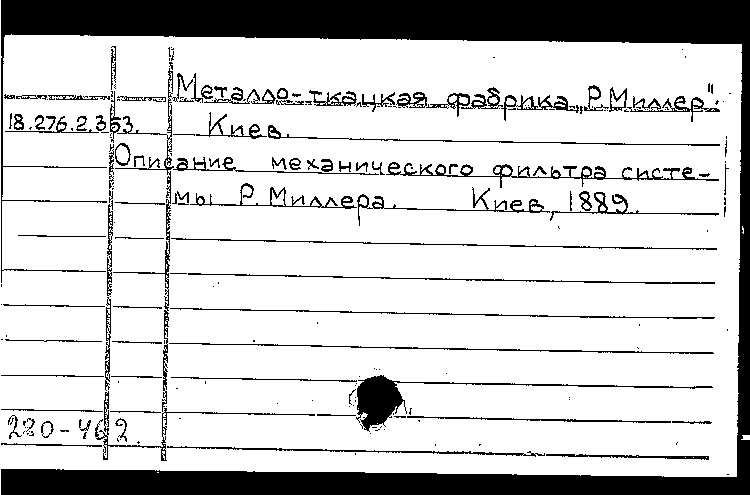 Металло-ткацкая фабрика „Р.Миллер".
18.276.2.353. Киев.
Описание механического фильтра систе-
мы Р. Миллера. Киев, 1889.
280-462.